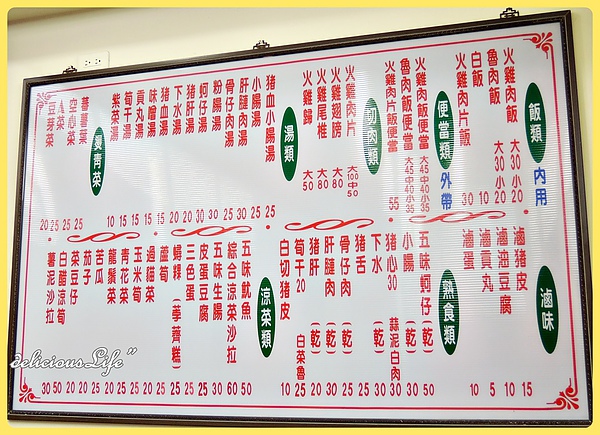 飯類 內用
火雞肉飯 大30小20
魯肉飯 大30小20
白飯 10
火雞肉片飯 30
便當類 外帶
火雞肉飯便當 大45中40小35
魯肉飯便當 大45中40小35
火雞肉片飯便當 55
切肉類
火雞肉片 大100中50
火雞翅膀 大50
火雞尾椎 大80
火雞歸 大50
湯類
豬血小腸湯 25
小腸湯 25
肝腱肉湯 30
骨仔肉湯 25
粉腸湯 30
蚵仔湯 30
豬肝湯 20
下水湯 20
豬血湯 15
味噌湯 15
貢丸湯 15
筍干湯 10
紫菜湯 10
燙青菜
蕃薯葉 25
空心菜 25
A菜 25
豆芽菜 20
滷味
滷豬皮 15
滷油豆腐 10
滷貢丸 5
滷蛋 10
熟食類
五味蚵仔(乾) 50
小腸(乾) 30
豬心30 蒜泥白肉 30
下水(乾) 30
豬舌 50
骨仔肉(乾)
肝腱肉(乾)
豬肝(乾)
筍干20 白菜魯 25
白切豬皮 10
涼菜類
五味魷魚 50
綜合涼菜沙拉 60
五味生腸 30
皮蛋豆腐
三色蛋
蟳粿(荸薺糕)
蘆筍
過貓菜
玉米筍
青花菜
龍鬚菜
苦瓜
茄子
菜豆仔
白醋涼筍 50
薯泥沙拉 30
deliciousLife"